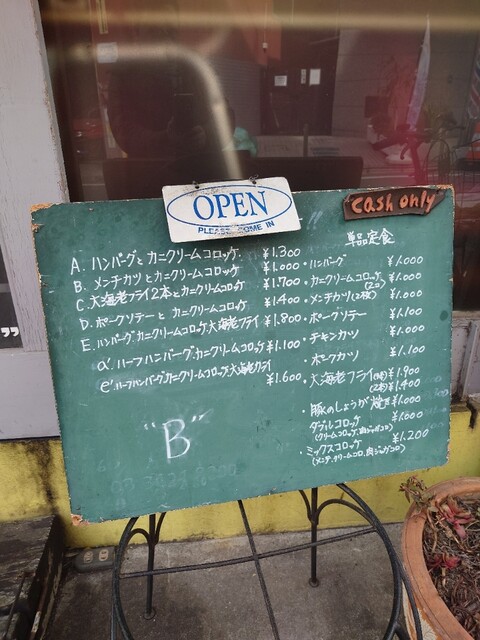 OPEN
PLEASE COME IN
cash only
A. ハンバーグとカニクリームコロッケ ¥1.300
B. メンチカツとカニクリームコロッケ ¥1.000
C. 大海老フライ2本とカニクリームコロッケ ¥1.700
D. ポークソテーと カニクリームコロッケ ¥1.400
E. ハンバーグ.カニクリームコロッケ.大海老フライ ¥1.800
ハーフハンバーグ.カニクリームコロッケ ¥1.100
e' ハーフハンバーグ.カニクリームコロッケ.大海老フライ ¥1.600
"B"
単品定食
・ハンバーグ ¥1.000
・カニクリームコロッケ(2コ) ¥1.000
・メンチカツ(2枚) ¥1.000
・ポークソテー ¥1.100
・チキンカツ ¥1.000
・ポークカツ ¥1.100
・大海老フライ ¥1.900
(2本) ¥1.400
・豚のしょうが焼き ¥1.000
ダブルコロッケ ¥1.000
・ミックスコロッケ ¥1.200